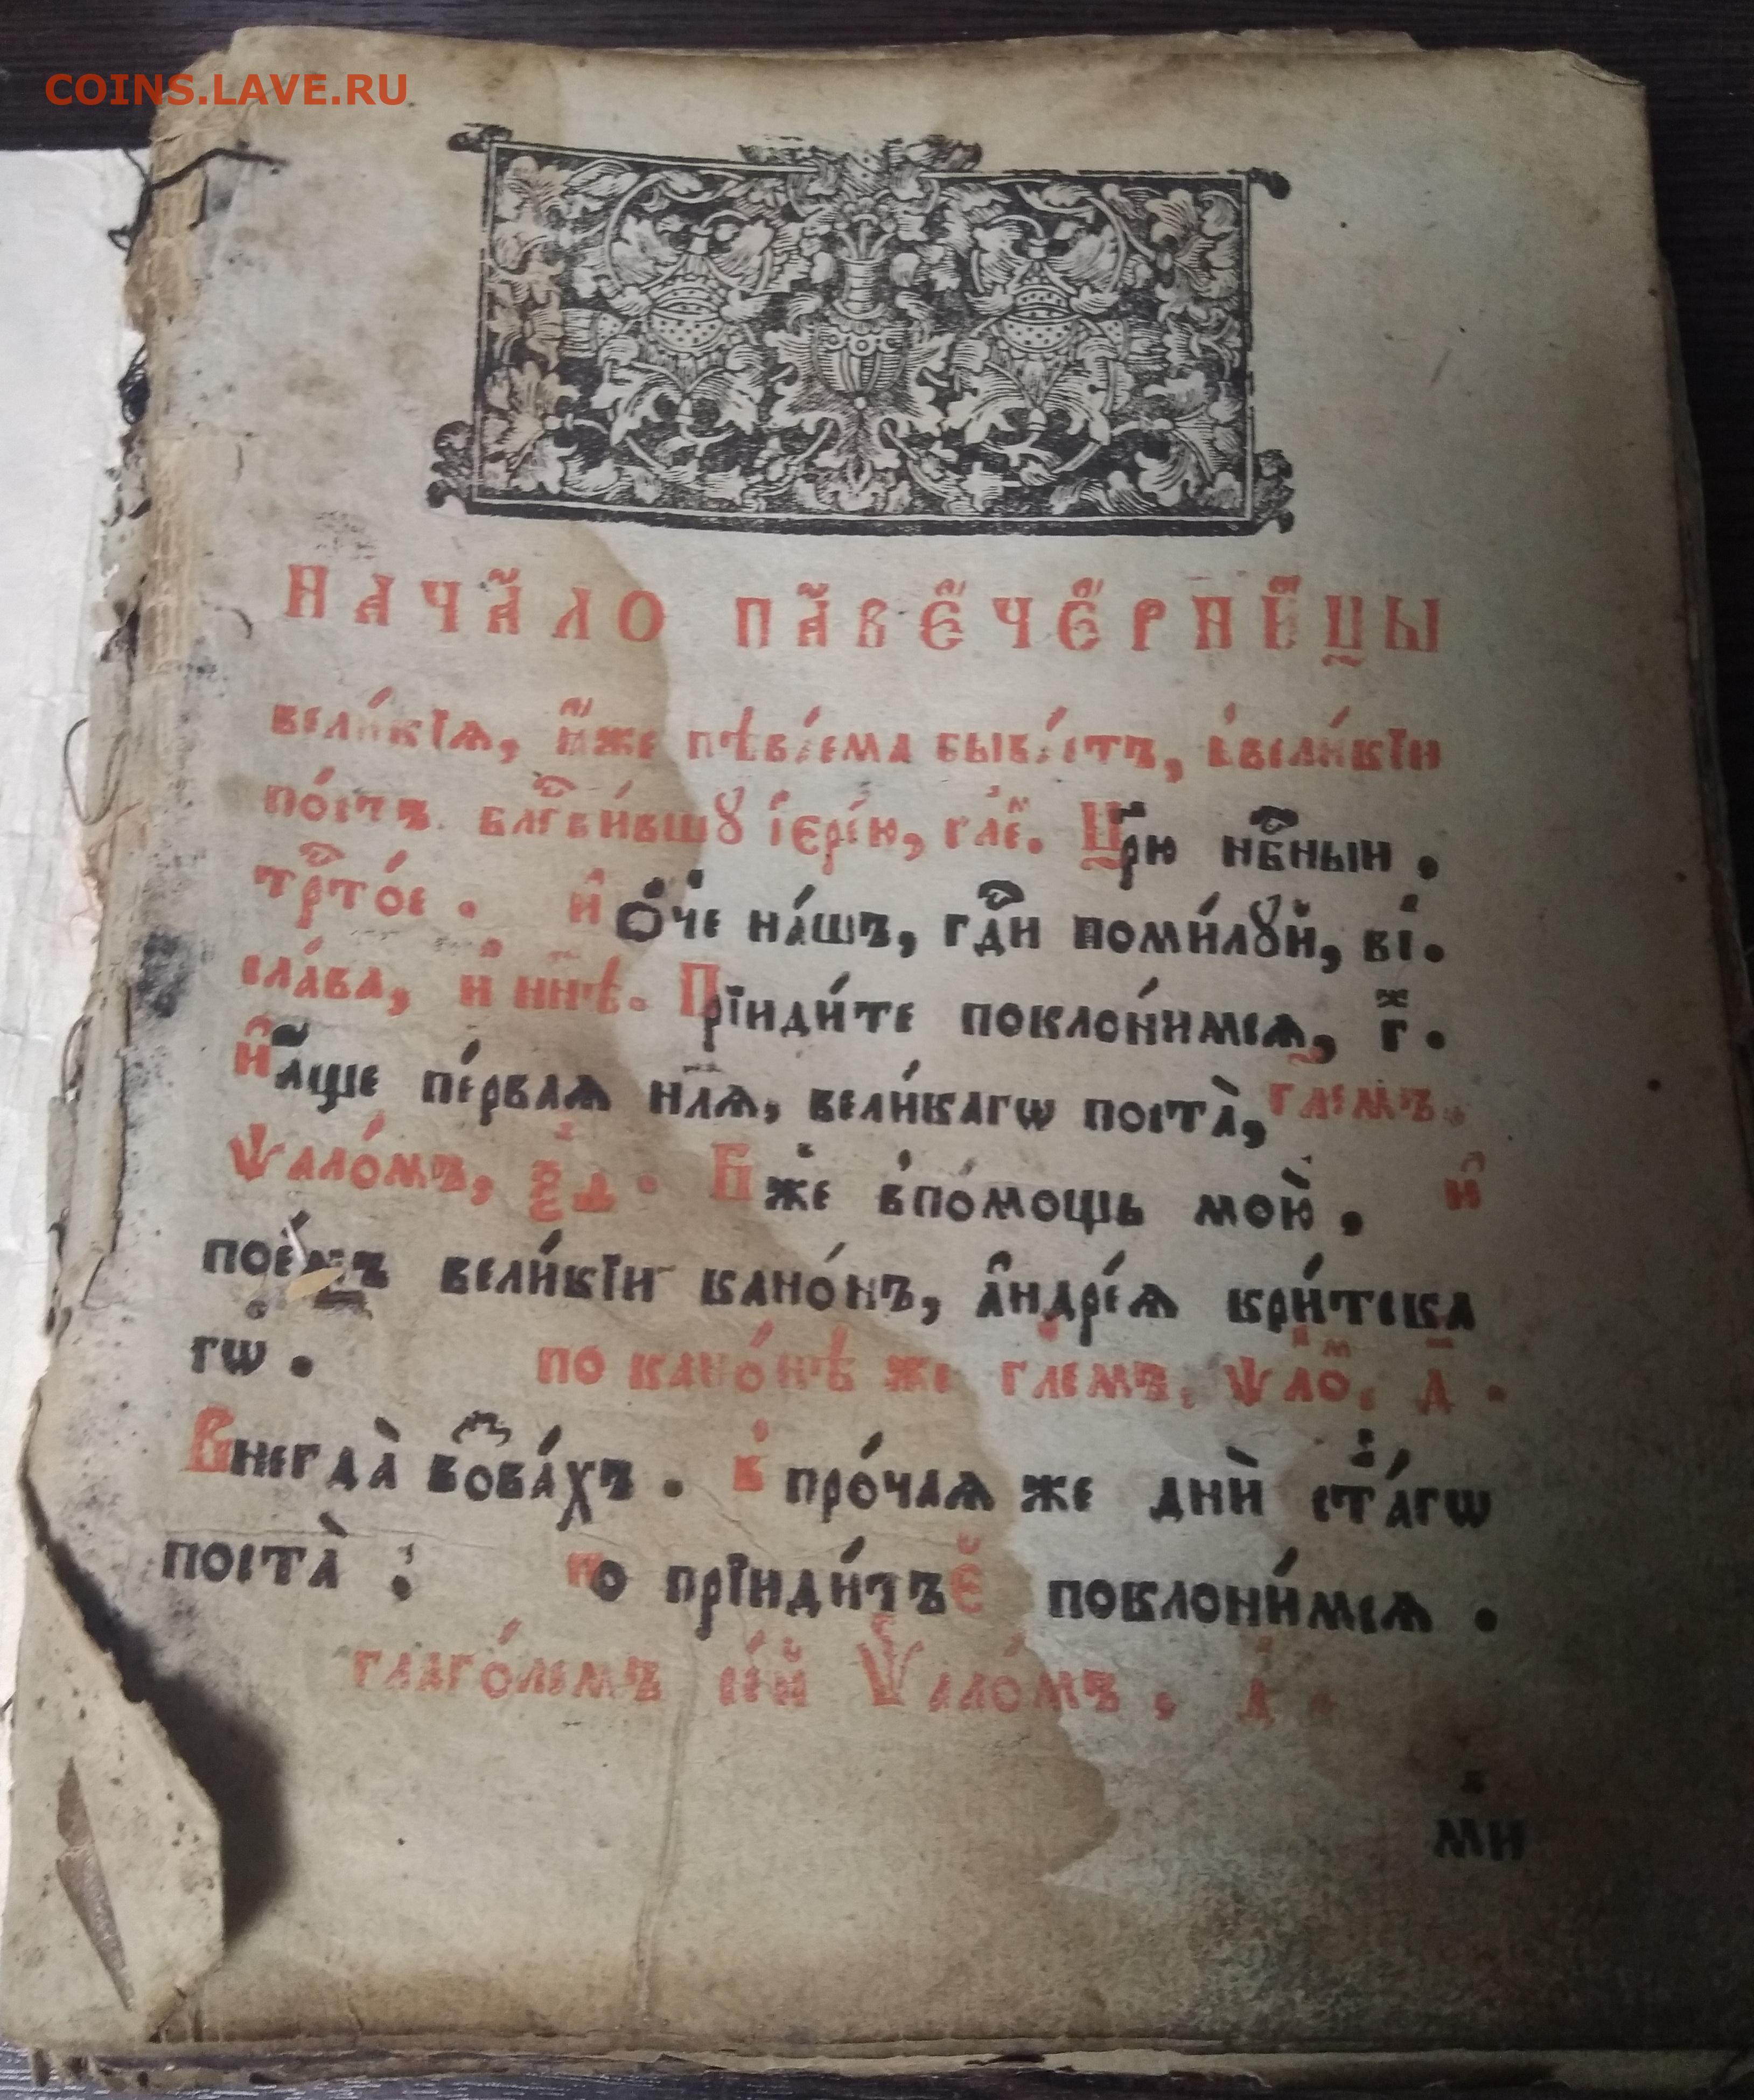 COINS.LAVE.RU
НАЧА́ЛО ПАВЕЧЕРНИЦЫ
вели́кїѧ, и҆́же пѣва́ема быва́етъ, в҆вели́кїи
по́стъ. блгⷭ҇ви́вшꙋ і҆ерє́ю, гл҃е. Цр҃ю нбⷭ҇ныи,
трⷭ҇то́е. и҆ ѻ҆́ч҃е на́шъ, гдⷭ҇и поми́лꙋй, в҃і.
сла́ва, и҆ нн҃ѣ. Прїиди́те поклони́мсѧ, г҃ⷤ.
И҆ а҆́ще пе́рваѧ нлⷧ҇ѧ, вели́кагѡ поста̀, гл҃емъ.
Ѱало́мъ, ѯ҃д. Бж҃е в҆по́мощь мою̀. и҆
пое́мъ вели́кїи кано́нъ, а҆ндре́ѧ кри́тска
гѡ.
по кано́нѣ же гл҃емъ, ѱало́ⷨ, д҃.
Внегда̀ возва́хъ. в҆ про́чаѧ же дни̑ ст҃а́гѡ
поста̀:
по прїиди́тъе поклони́мсѧ.
глаго́лемъ се́й Ѱало́мъ, д҃.
ми